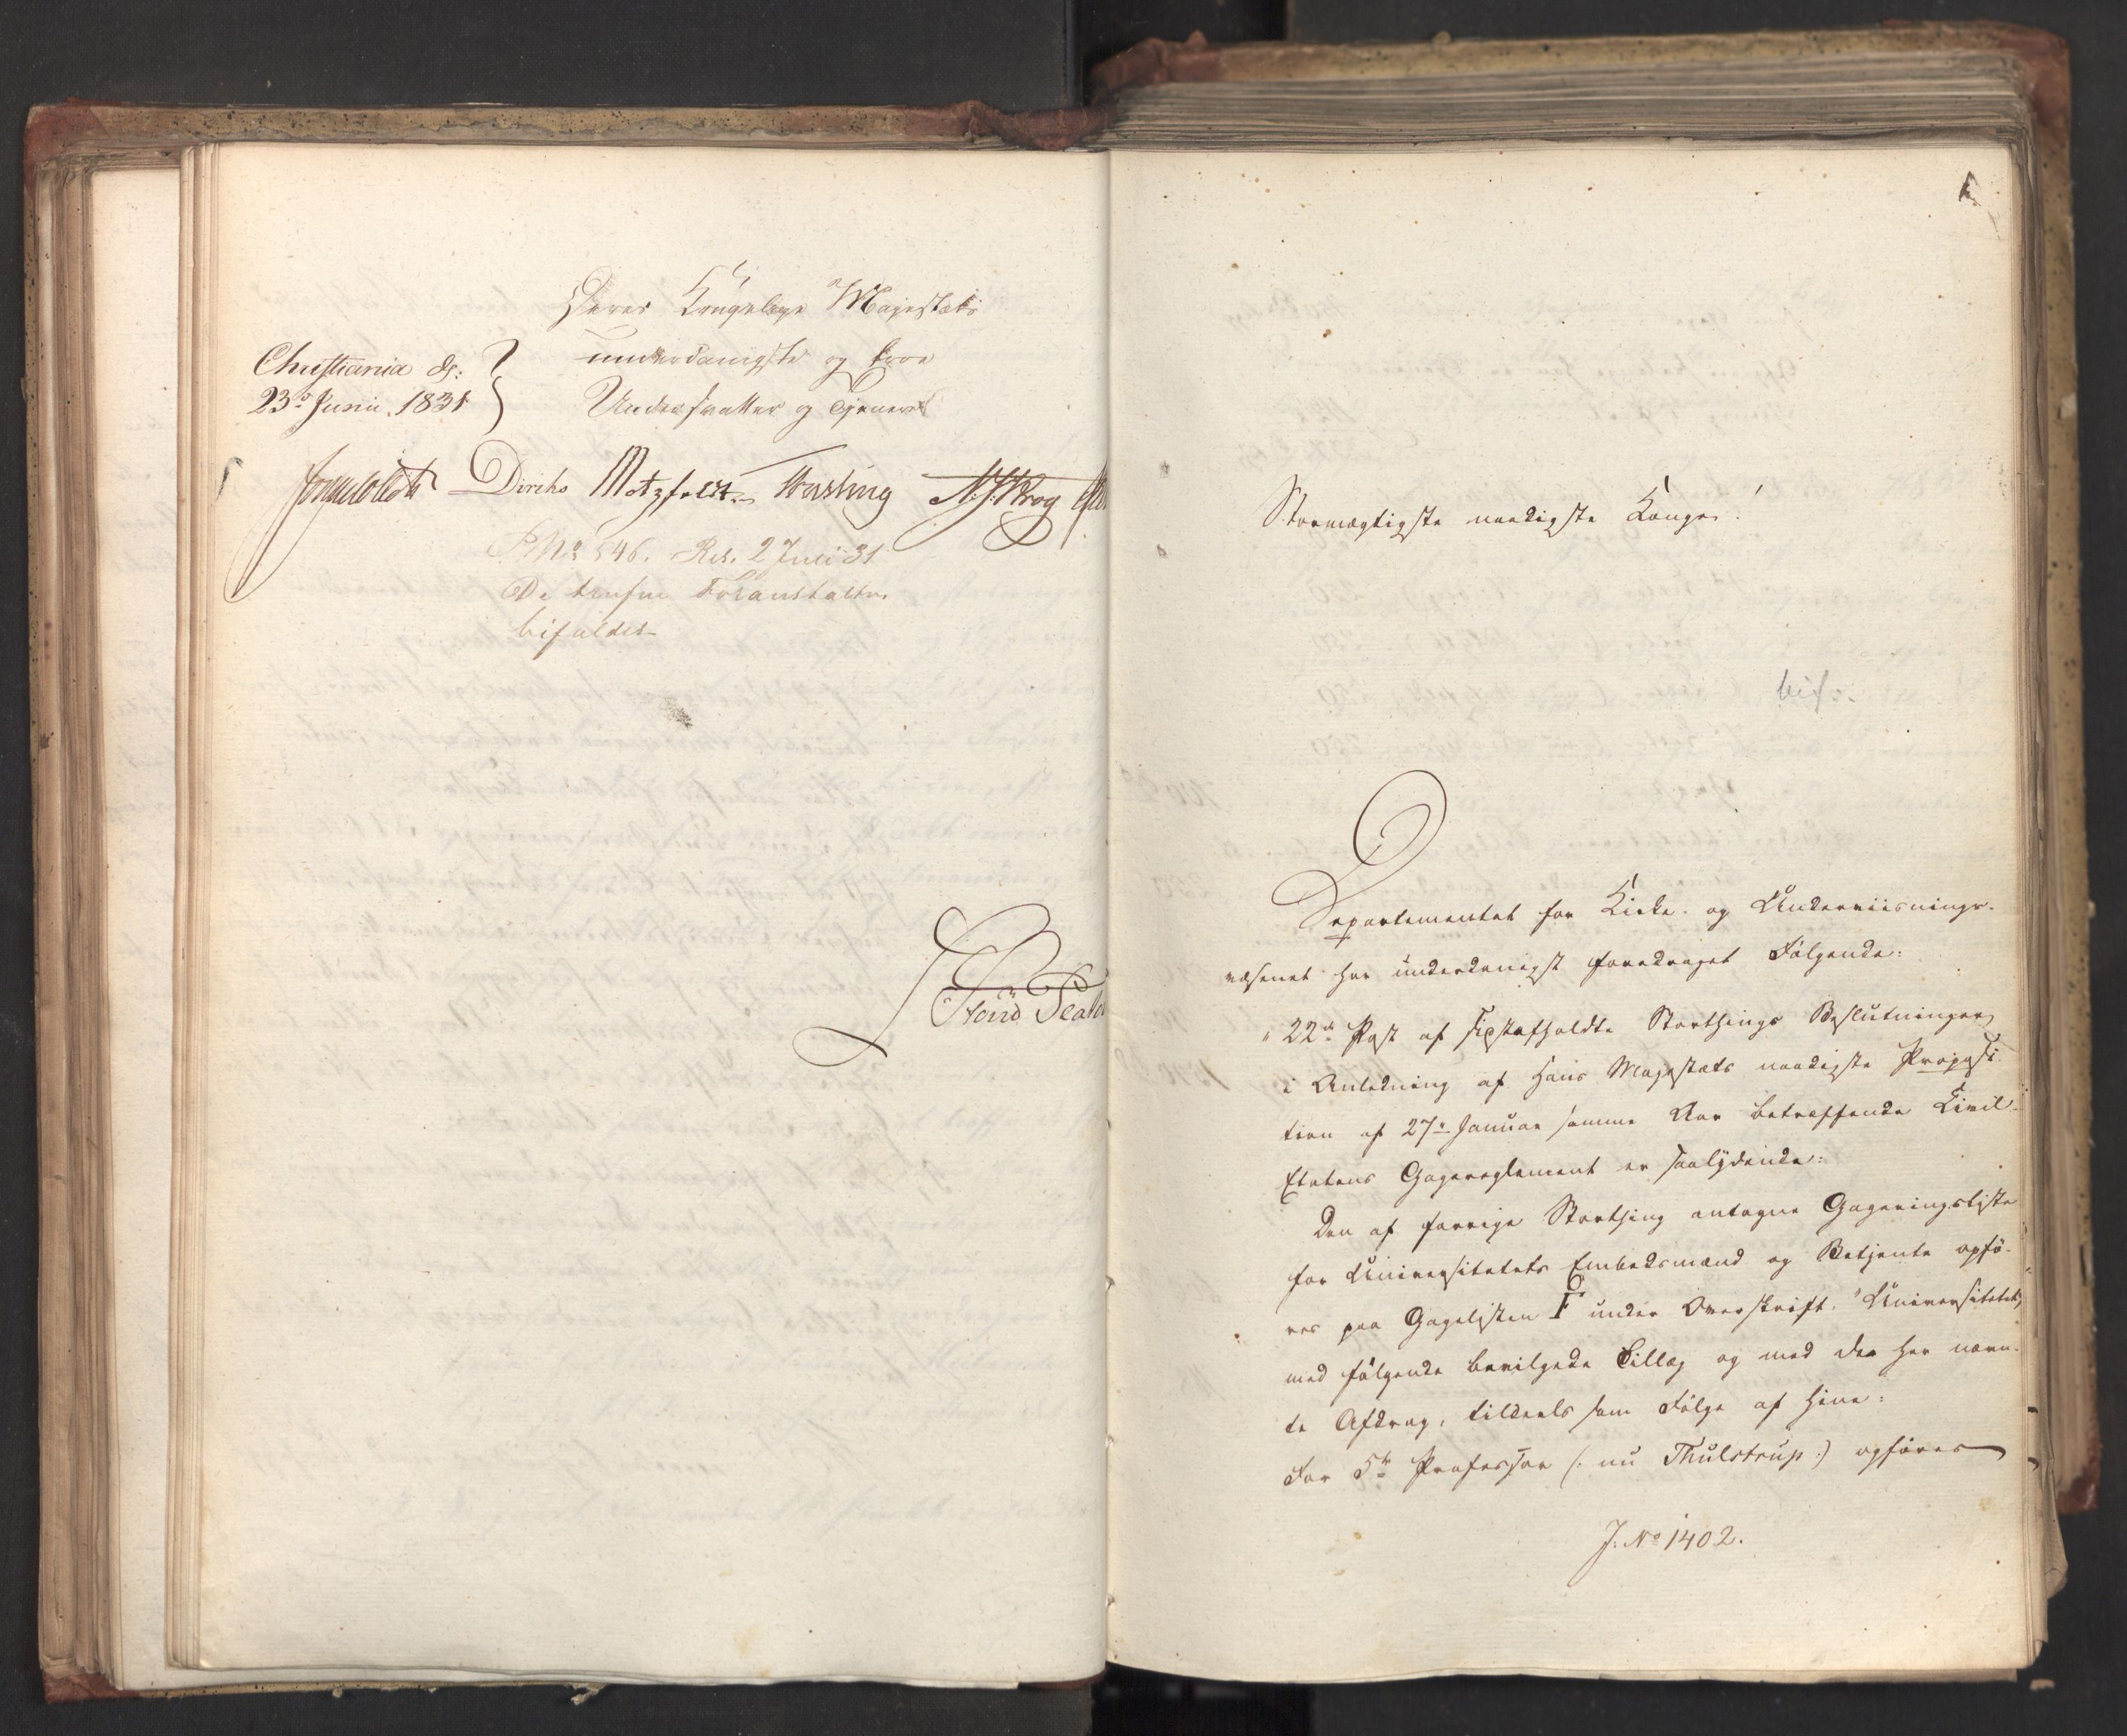 Deres Kongelige Majestæts
underdanigste og troe
Christiania d:
23de Junii 1831
Undersaatter og Tjenere
Diriks Motzfeldt N. J. Krog
P. No 546. Res. 2 Juli 31
De trufne Foranstaltn.
bifaldes
Stormægtigste naadigste Konge!
bif:
Departementet for Kirke- og Underviisnings-
væsenet har underdanigst foredraget Følgende:
"22de Post af sidstafholdte Storthings Beslutninger
i Anledning af Hans Majestæts naadigste Proposi-
tion af 27de Januar samme Aar betræffende Civil-
Etatens Gagereglement er saalydende:
Den af forrige Storthing antagne Gageringsliste
for Universitetets Embedsmænd og Betjente opfø-
res paa Gagelisten F under Overskrift: "Universitetet,"
med følgende bevilgede Tillæg og med der her nævn-
te Afdrag, tildeels som Følge af hine:
For 5te Professor (: nu Thulstrup :) opføres
J. No 1402.